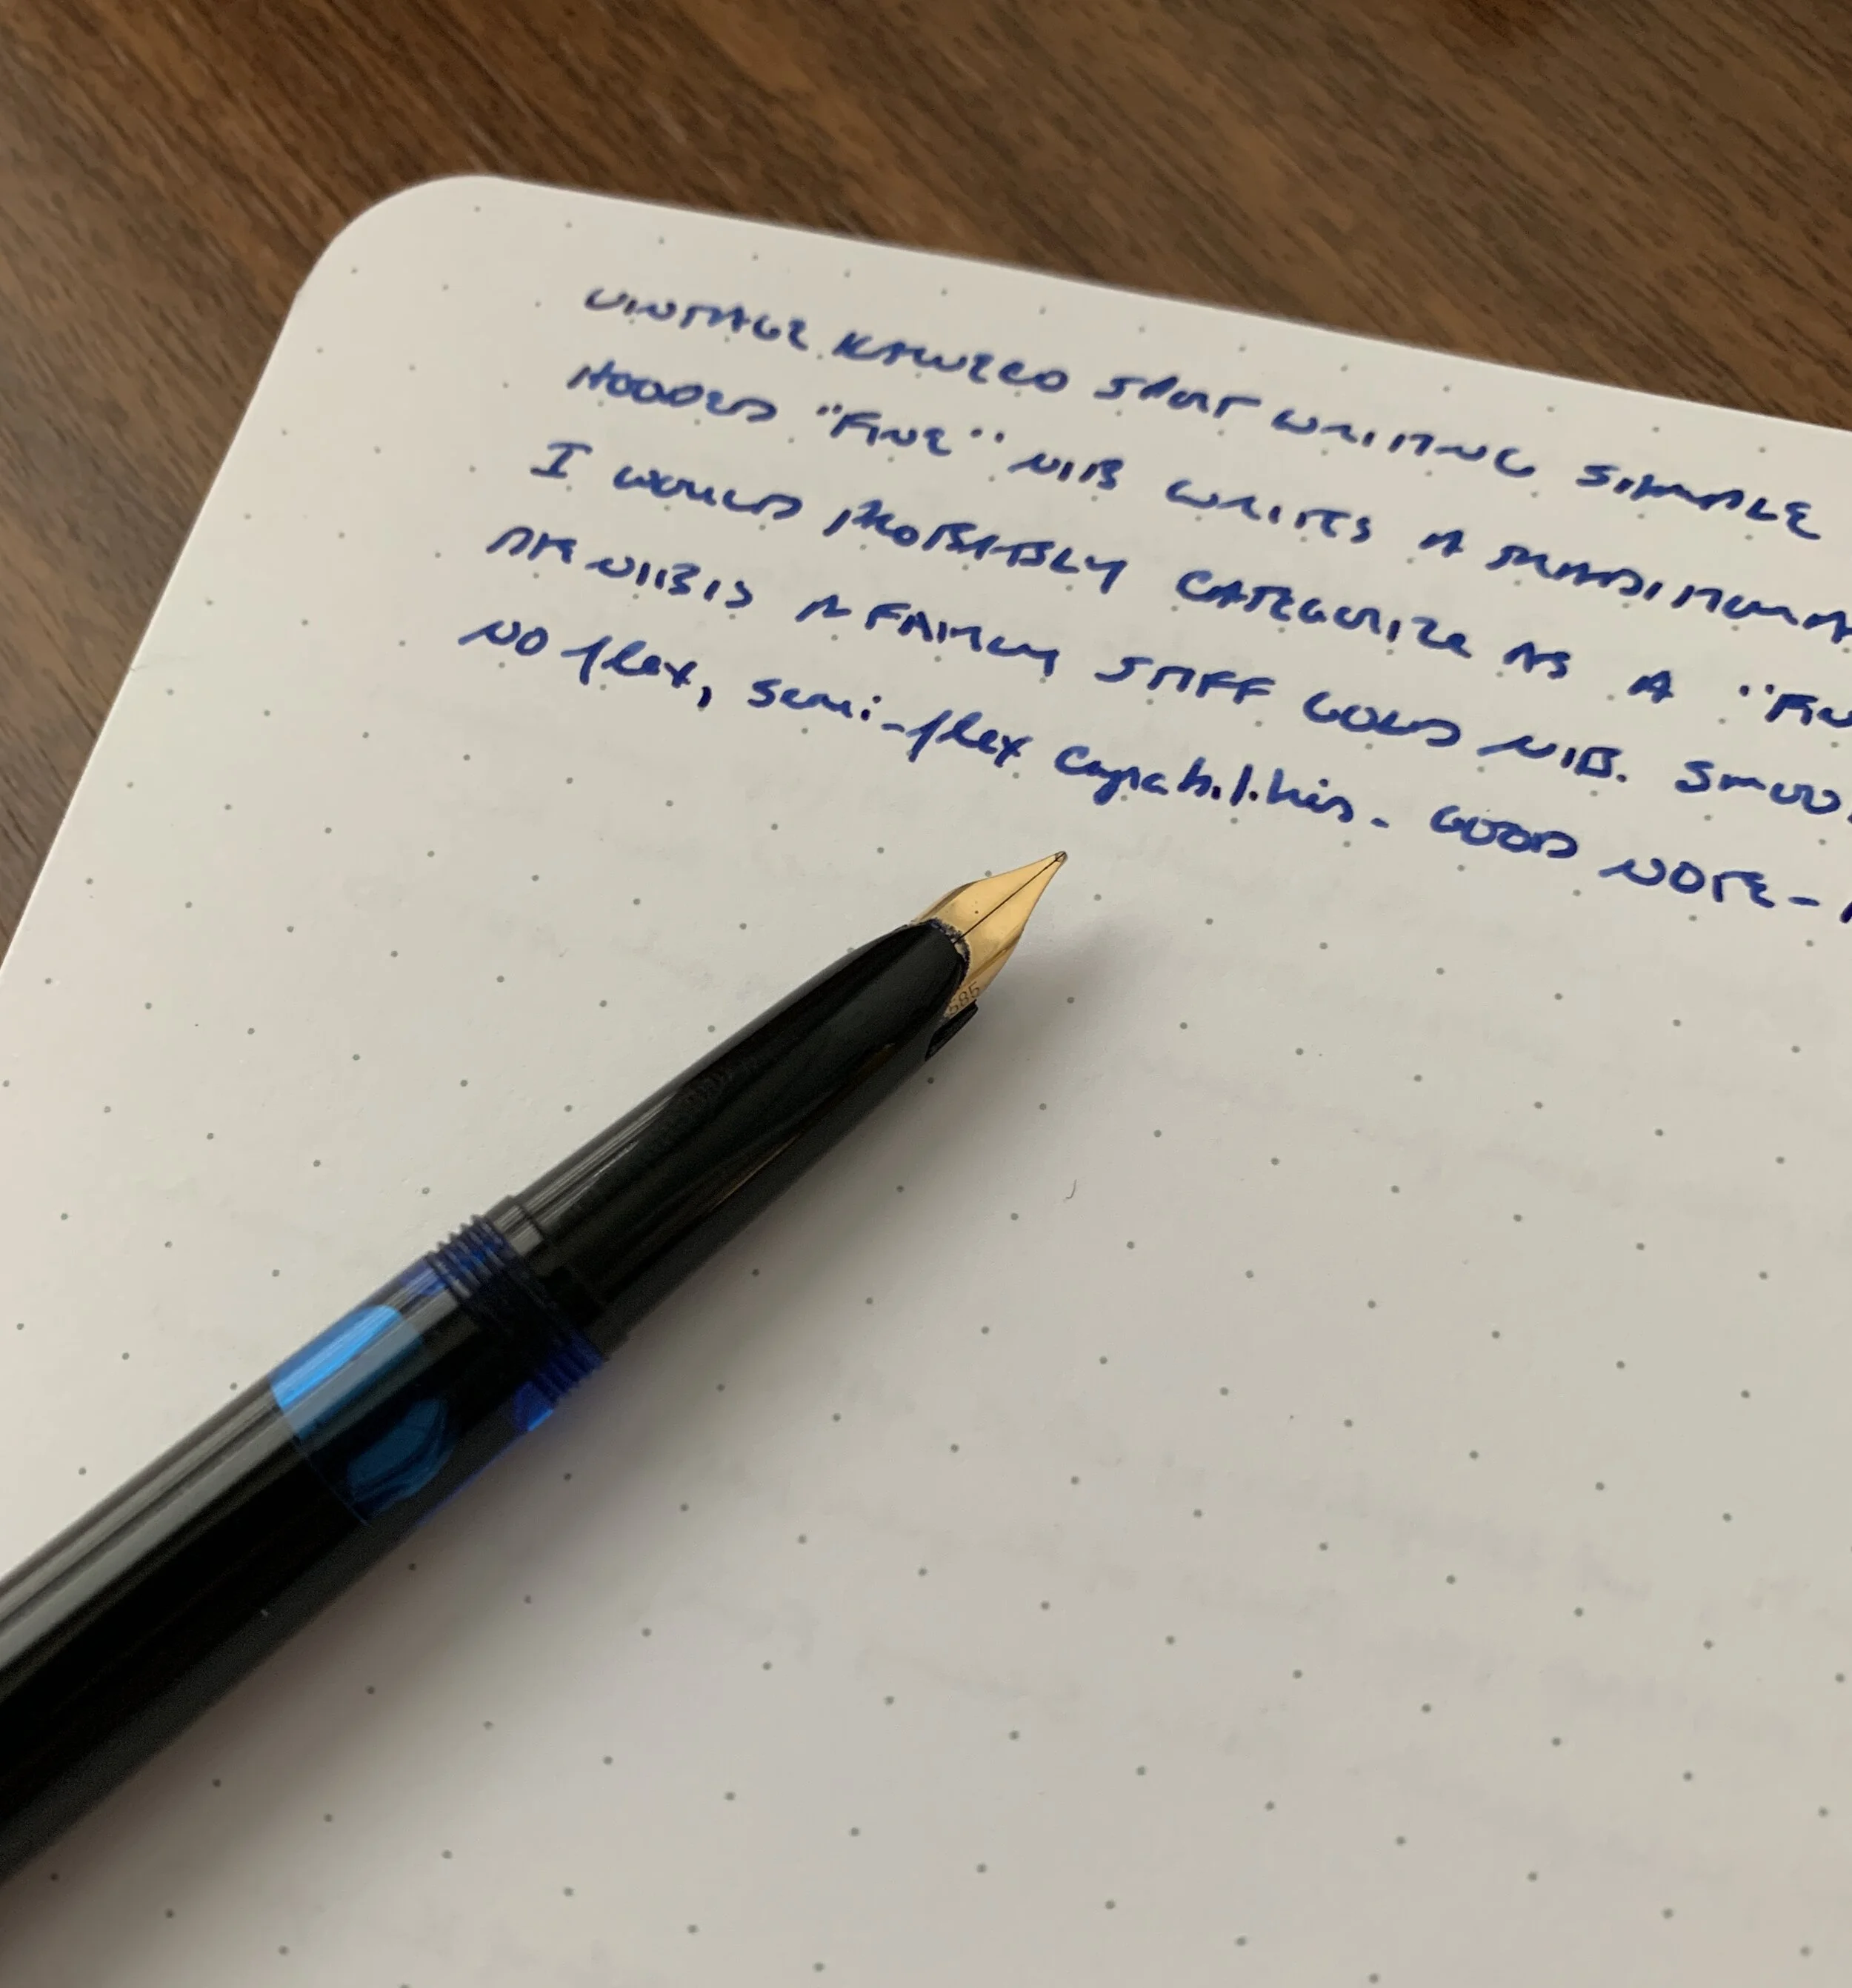 VINTAGE KAWECO SPORT WRITING SIMPLE
HOODED "FINE" NIB WRITES A TRADITIONA
I WOULD PROBABLY CATEGORIZE AS A "FIN
THE NIB IS A FAIRLY STIFF GOLD NIB. SMOO
NO flex, semi-flex capabilities. GOOD NOTE-
585